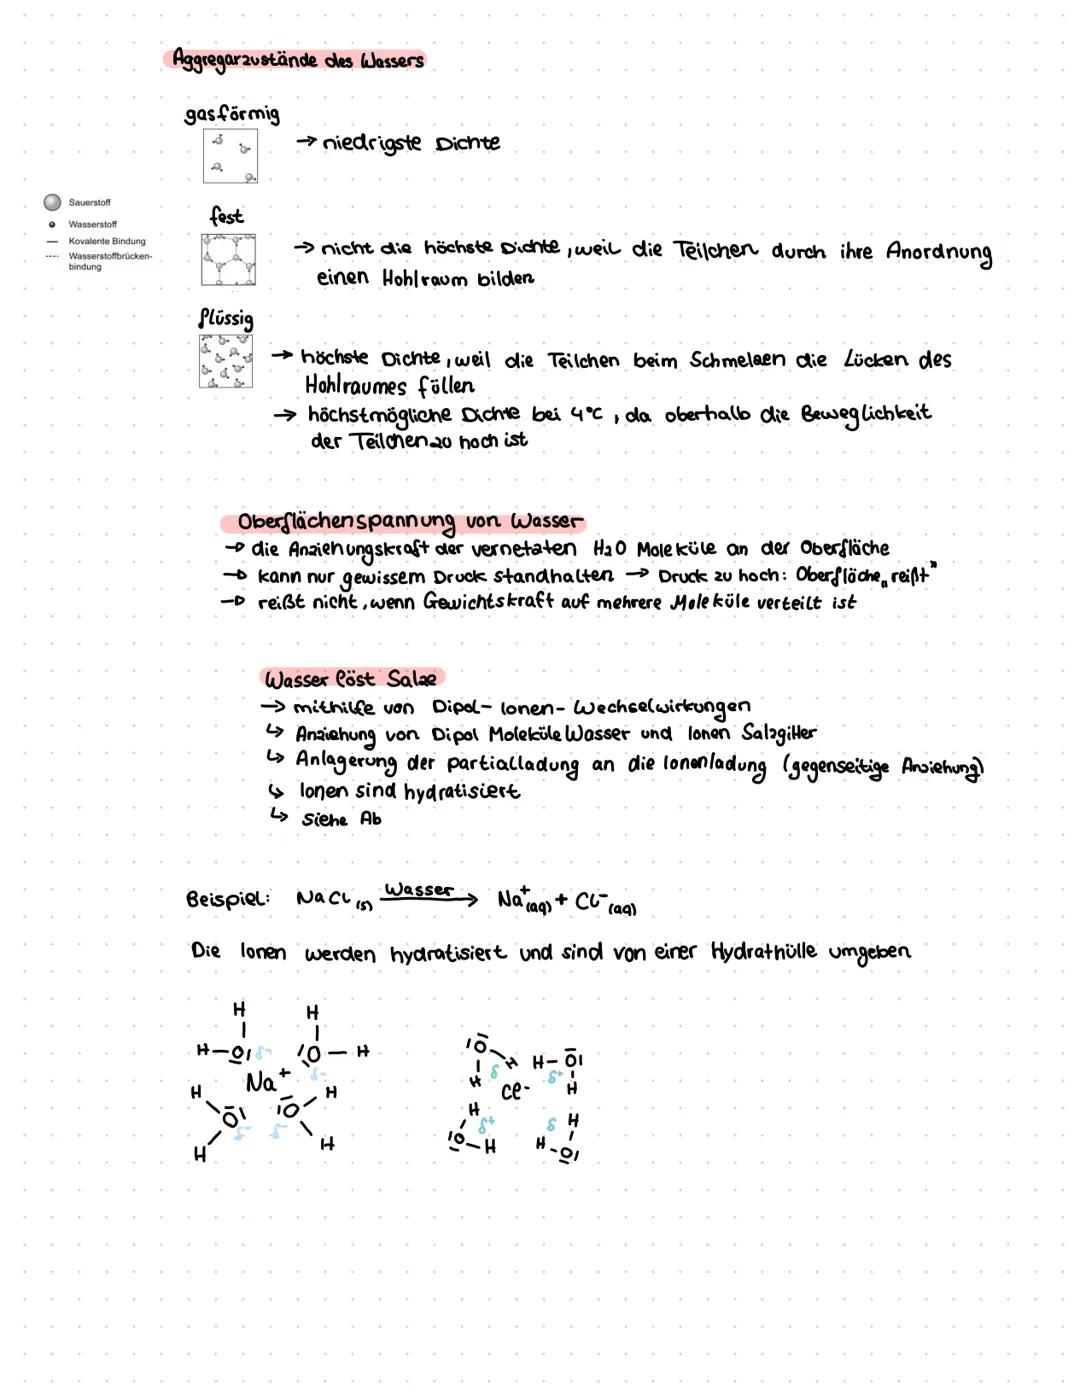 Aggregarzustände des Wassers
gasförmig
→ niedrigste Dichte
Sauerstoff
Wasserstoff
Kovalente Bindung
Wasserstoffbrücken-
bindung
fest
→ nicht die höchste Dichte, weil die Teilchen durch ihre Anordnung
einen Hohlraum bilden
flüssig
→ höchste Dichte, weil die Teilchen beim Schmelzen die Lücken des
Hohlraumes füllen
→ höchstmögliche Dichte bei 4°C, da oberhalb die Beweglichkeit
der Teilchen zu hoch ist
Oberflächenspannung von Wasser
→ die Anziehungskraft der vernetzten H2O Moleküle an der Oberfläche
→ kann nur gewissem Druck standhalten → Druck zu hoch: Oberfläche „reißt"
→ reißt nicht, wenn Gewichtskraft auf mehrere Moleküle verteilt ist
Wasser löst Salze
→ mithilfe von Dipol-Ionen-Wechselwirkungen
↳ Anziehung von Dipol Moleküle Wasser und Ionen Salzgitter
↳ Anlagerung der partialladung an die Ionenladung (gegenseitige Anziehung)
↳ Ionen sind hydratisiert
↳ siehe Ab
Beispiel: NaCl (s) Wasser → Na+ (aq) + Cl- (aq)
Die Ionen werden hydratisiert und sind von einer Hydrathülle umgeben
H H
H-O δ- O-H O H-O
Na+ δ- δ δ+
H H H Cl- H
O O H δ+ δ H
δ- δ- O-H H-O
H H